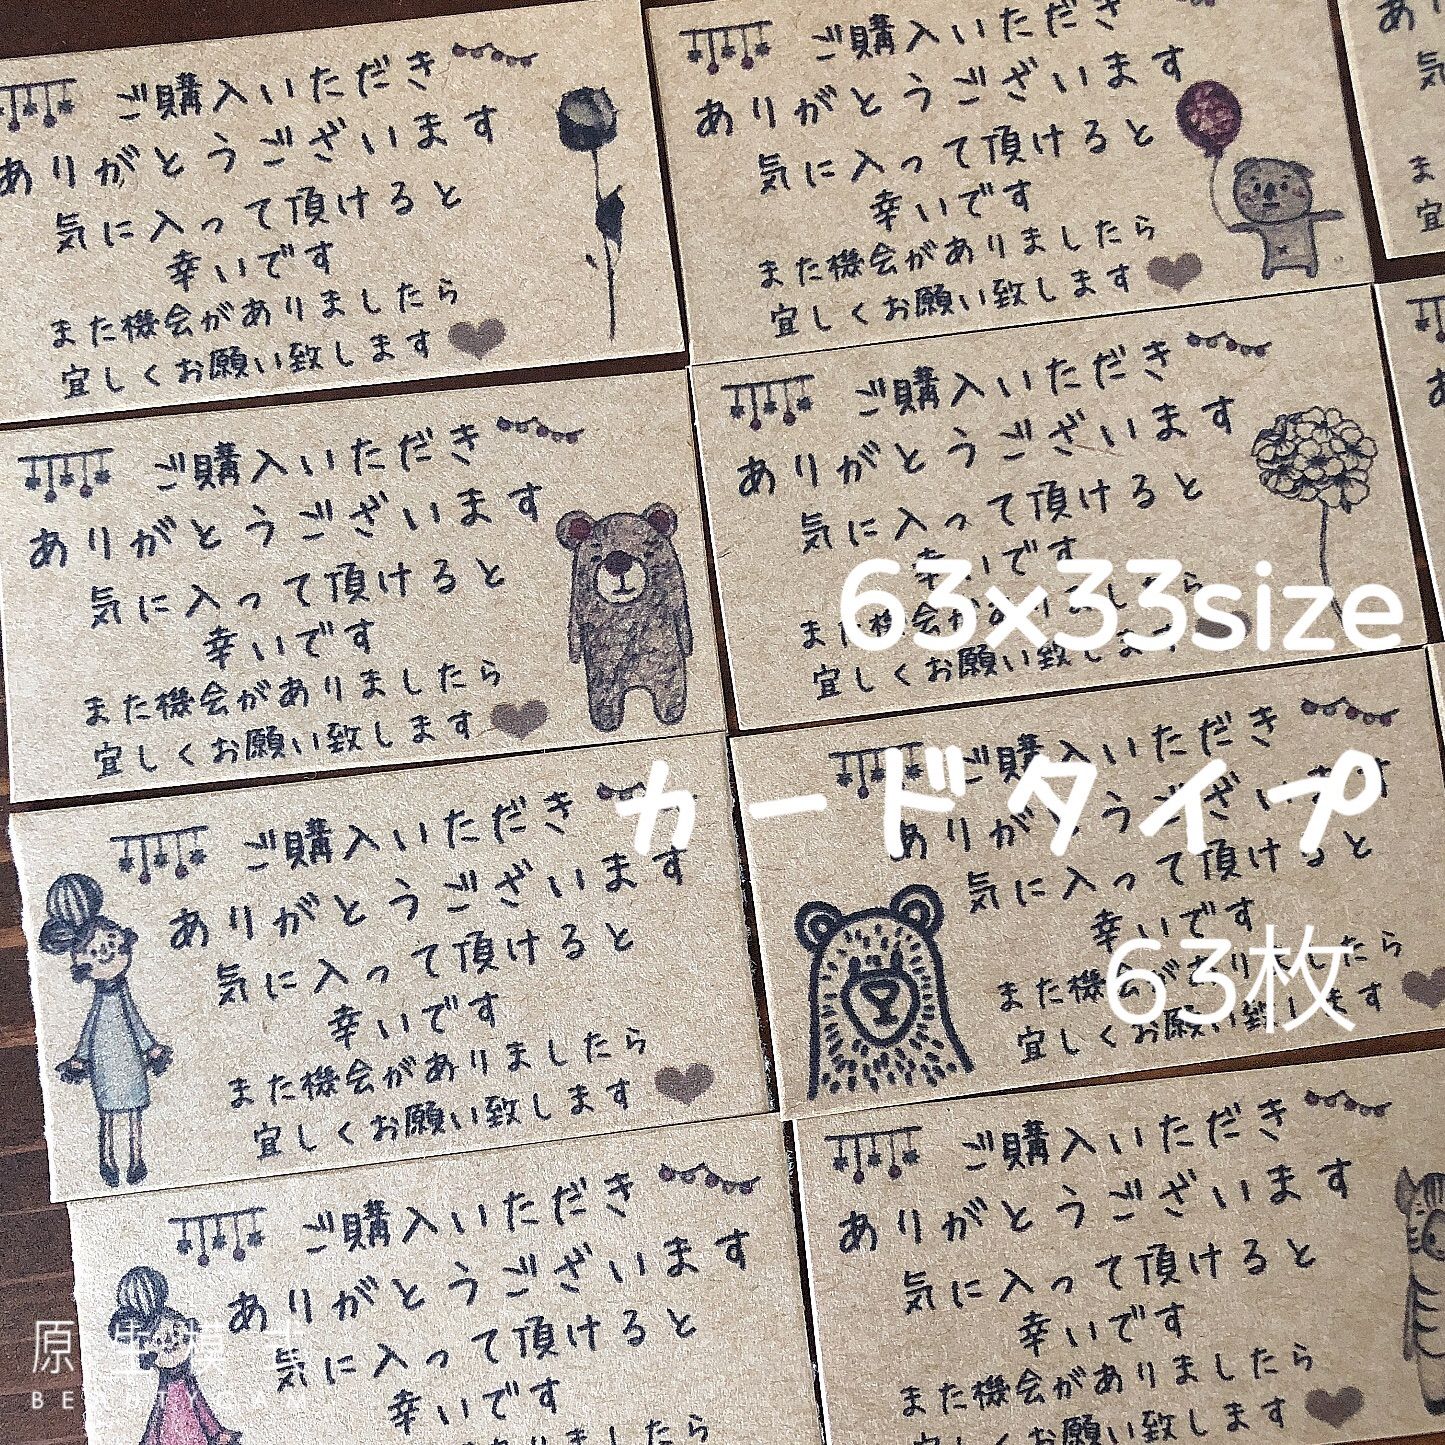 ご購入いただき
ありがとうございます
気に入って頂けると
幸いです
また機会がありましたら
宜しくお願い致します
ご購入いただき
ありがとうございます
気に入って頂けると
幸いです
また機会がありましたら
宜しくお願い致します
ご購入いただき
ありがとうございます
気に入って頂けると
幸いです
また機会がありましたら
宜しくお願い致します
ご購入いただき
ありがとうございます
気に入って頂けると
幸いです
また機会がありましたら
宜しくお願い致します
63x33size
カードタイプ
63枚
ご購入いただき
ありがとうございます
気に入って頂けると
幸いです
また機会がありましたら
宜しくお願い致します
ご購入いただき
ありがとうございます
気に入って頂けると
幸いです
また機会がありましたら
宜しくお願い致します
ご購入いただき
ありがとうございます
気に入って頂けると
幸いです
ご購入いただき
ありがとうございます
気に入って頂けると
幸いです
また機会がありましたら
宜しくお願い致します